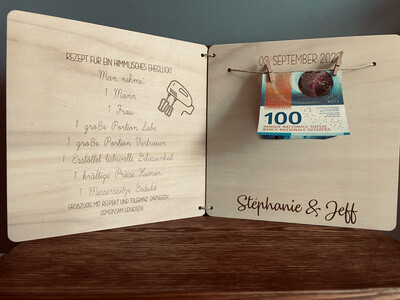 REZEPT FÜR EIN HIMMLISCHES EHEGLÜCK!
Man nehme:
1 Mann
1 Frau
1 große Portion Liebe
1 große Portion Vertrauen
1 Esslöffel liebevolle Gelassenheit
1 kräftige Priese Humor
1 Messerspitze Geduld
GROSSZÜGIG MIT RESPEKT UND TOLERANZ GARNIEREN.
GEMEINSAM GENIESSEN!
03. SEPTEMBER
100
BANQUE NATIONALE SUISSE
BANCA NAZIONALE SVIZZERA
Stéphanie & Jeff